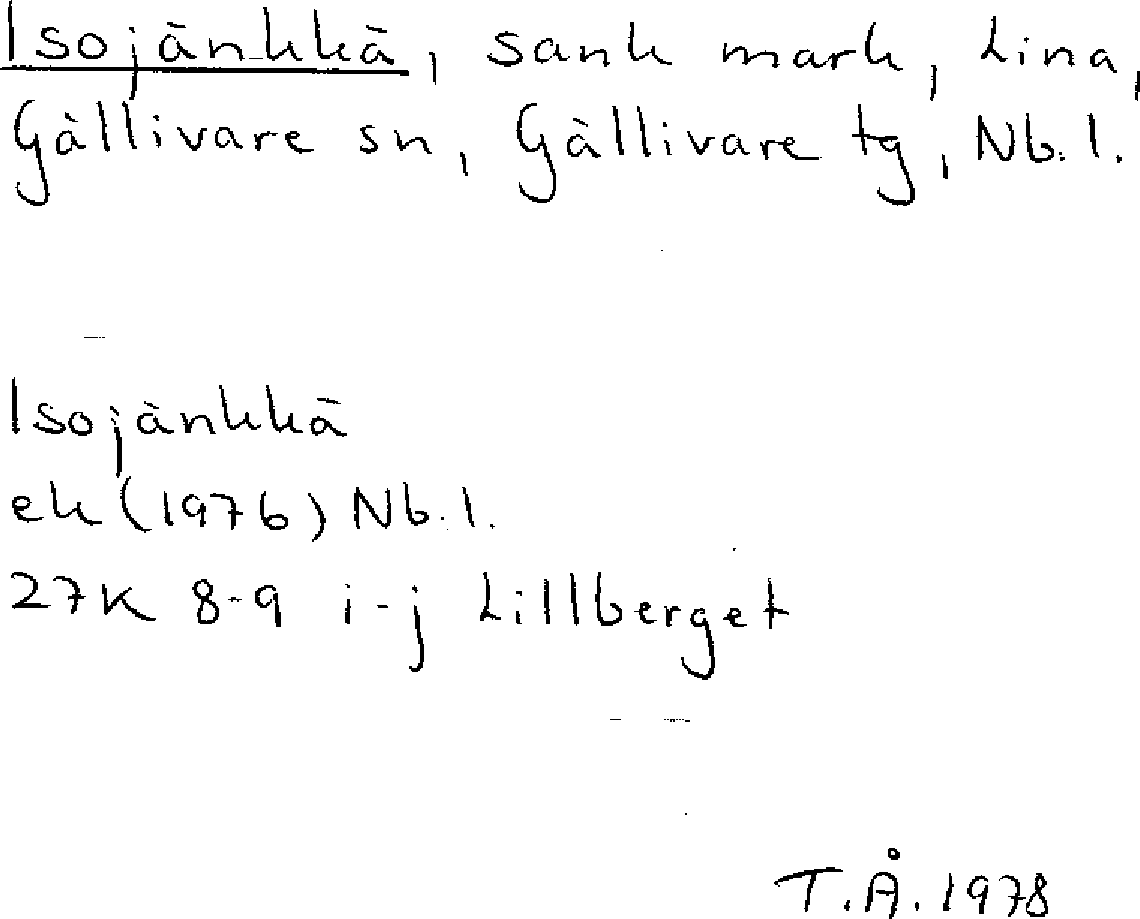 Isojänkkä, sank mark, Lina,
Gällivare sn, Gällivare tg, Nb. l.
Isojänkkä
ek (1976) Nb. l.
27K 8-9 i-j Lillberget
T.Å. 1978